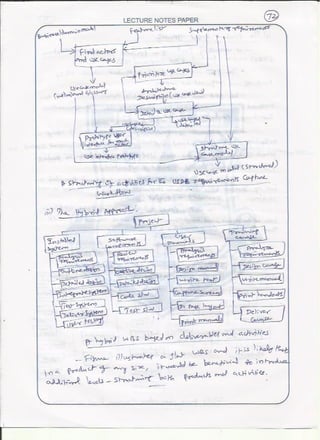 72
LECTURE NOTES PAPER
Business/domain model
Feature list
Supplementary requirements
Find actors
and use cases
Prioritize use cases
Use case model
Architecture
Description (use case view)
Detail a use case
Prototype user
Use interface prototype
Structure use
case model
Use case model (structured)
Structuring of activities for the USDP requirements capture
workflow
ii) The Hybrid Approach.
Project
Installed
System
Software
User
manuals
Training
course
Analyse
requirements
Review
requirements
Analyse
requirements
Analyse
requirements
Outline design
Outline design
Design manuals
Design course
Detailed design
Detailed design
Write text
Write manual
Integrate system
Code s/w
Capture screens
Print handouts
Test system
Test s/w
Do page layout
Deliver
course
Deliver system
Print manual
User testing
A hybrid WBS based on deliverables and activities
- Figure illustrates a flat WBS and it is likely that
in a product of any size, it would be beneficial to introduce
additional levels - structuring both products and activities.